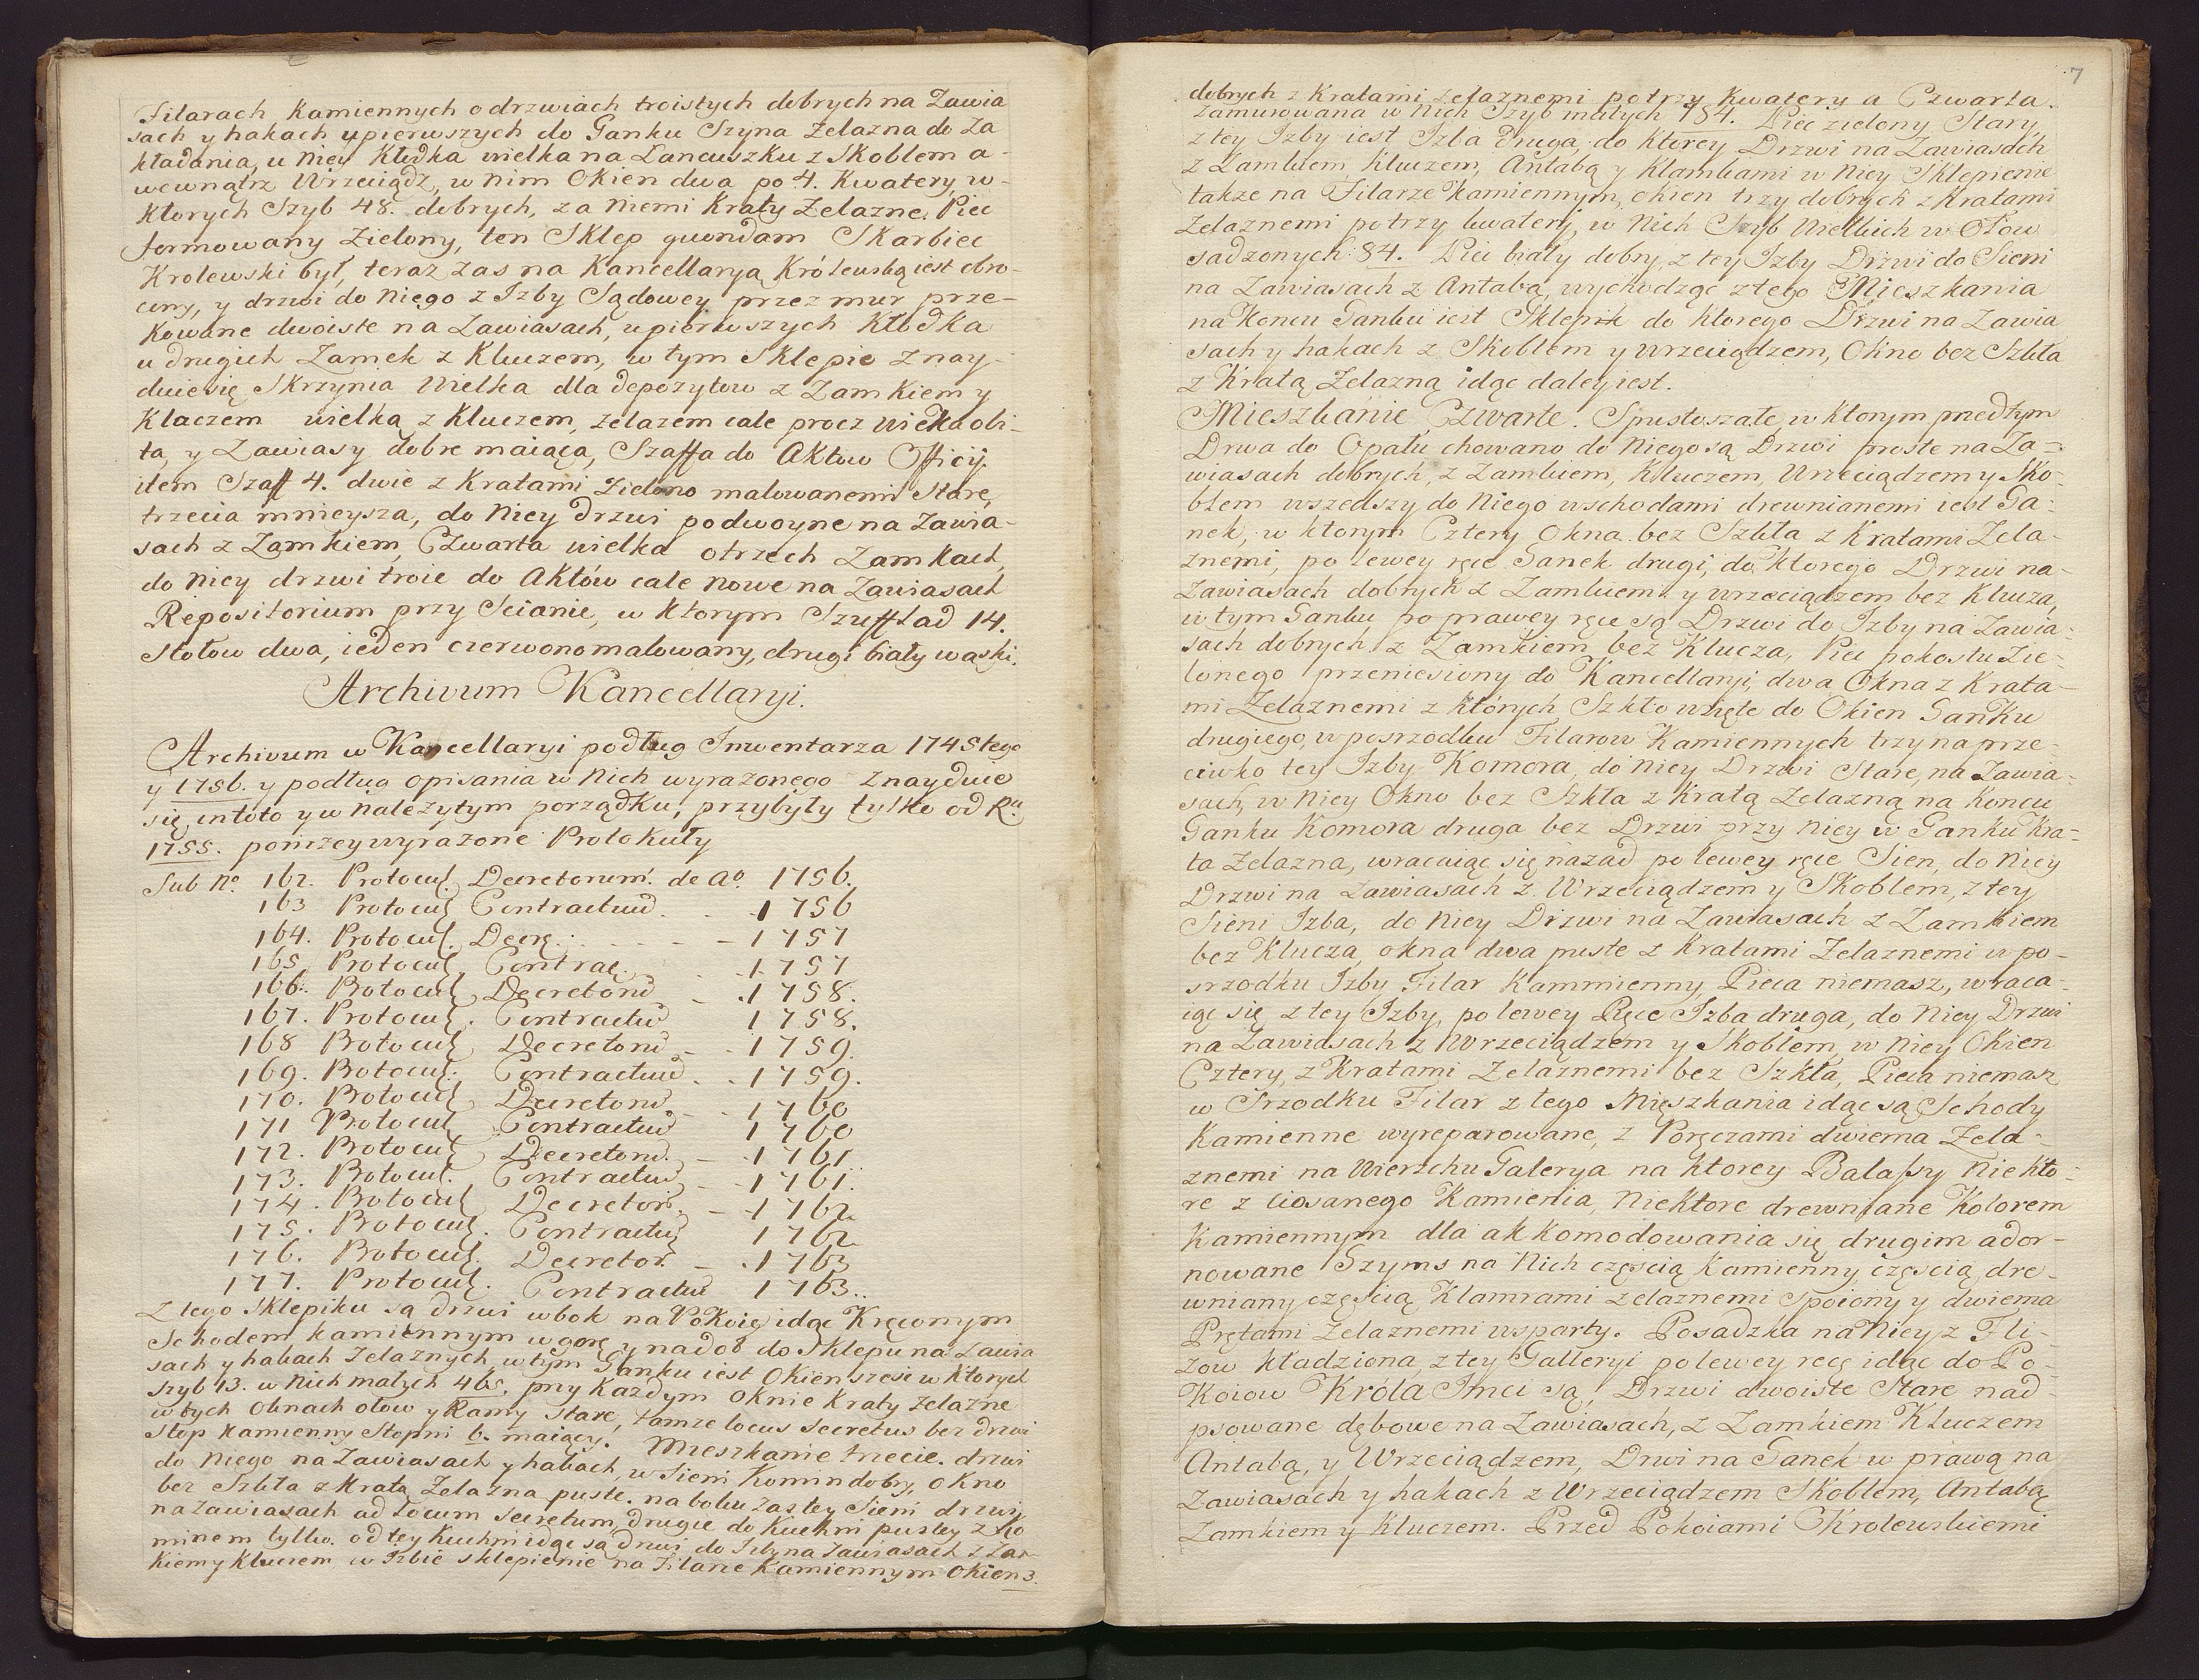 Filarach Kamiennych o drzwiach troistych dobrych na Zawia
sach y hakach u pierwszych do Ganku Szyna Zelazna do Za
kładania, u niey Kłodka wielka na Lancuszku z Skoblem a
wewnątrz Wrzeciądz, w nim Okien dwa po 4. Kwatery, w-
ktorych Szyb 48. dobrych, za niemi Kraty Zelazne, Piec
formowany Zielony, ten Sklep quondam Skarbiec
Krolewski był, teraz zas na Kancellaryą Królewską iest obro-
cony, y drzwi do niego z Izby Sądowey przez mur prze-
kowane dwoiste na Zawiasach, u pierwszych Kłodka
u drugich Zamek z Kluczem, w tym Sklepie znay-
duie się Skrzynia Wielka dla depozytow z Zamkiem y
Klaczem wielką z Kluczem, zelazem cale procz wieka obi-
ta, y Zawiasy dobre maiąca, Szaffa do Aktow Officij
item Szaff 4. dwie z Kratami zielono malowanemi Stare,
trzecia mnieysza, do niey drzwi podwoyne na Zawia-
sach z Zamkiem, Czwarta wielka o trzech Zamkach,
do niey drzwi troie do Aktów cale nowe na Zawiasach
Repositorium przy Scianie, w ktorym Szufflad 14.
Stołow dwa, ieden czerwono malowany, drugi biały wąski.
Archivum Kancellaryi.
Archivum w Kancellaryi podług Inwentarza 1745tego
y 1756. y podług opisania w nich wyrazonego znayduie
się in toto y w nalezytym porządku, przybyły tylko od Ru
1755. ponizey wyrazone Protokuły
Sub No. 162. Protocul. Decretorum. de Ao. 1756.
163 Protocul Contractuu . . 1756
164. Protocul. Decre. . . . 1757
165. Protocul. Contrac. . . 1757
166. Protocul Decretoru . 1758.
167. Protocul. Contractuu 1758.
168 Protocul Decretoru - 1759.
169. Protocul. Contractuu . . 1759.
170. Protocul Decretoru - 1760
171 Protocul Contractuu 1760
172. Protocul Decretoru. - 1761
173. Protocul. Contractuu - 1761.
174. Protocul Decretor. - 1762
175. Protocul. Contractuu 1762
176. Protocul. Decretor. - 1763
177. Protocul. Contractuu 1763..
Z tego Sklepiku są drzwi w bok na Pokoie idąc Kręconym
Schodem kamiennym w gorę y na doł do Sklepu na Zawia
sach y hakach Zelaznych, w tym Ganku iest Okien szesc w ktorych
szyb 13. w nich małych 465. przy Kazdym Oknie Kraty zelazne
w tych Oknach ołow y Ramy stare, tamze locus secretus bez drzwi
Step kamienny Stopni 6. maiący. Mieszkanie trzecie. drzwi
do niego na Zawiasach y hakach, w Sieni Komin dobry, okno
bez Szkła z Kratą Zelazna puste. na boku zas tey Sieni drzwi
na zawiasach ad locum secretum, drugie do Kuchni pustey z Ko
minem tylko. od tey Kuchni idąc są drzwi do Izby na Zawiasach z Zam-
kiem y Kluczem w Izbie sklepienie na Filarze Kamiennym Okien 3.
7
dobrych z Kratami zelaznemi po trzy Kwatery a Czwarta.
Zamurowana w nich Szyb małych 184. Piec zielony Stary,
z tey Izby iest Izba druga, do ktorey Drzwi na Zawiasach
z Zamkiem, Kluczem, Antabą y Klamkami w niey Sklepienie
takze na Filarze Kamiennym, okien trzy dobrych z Kratami
Zelaznemi po trzy kwatery, w nich Szyb wielkich w Ołow
sadzonych 84. Piec biały dobry, z tey Izby Drzwi do Sieni
na Zawiasach z Antabą, wychodząc z tego Mieszkania
na Koncu Ganku iest Sklepik do ktorego Drzwi na Zawia
sach y hakach z Skoblem y wrzeciądzem, Okno bez Szkła
z Kratą Zelazną idąc daley iest.
Mieszkanie Czwarte. Spustoszałe, w ktorym przedtym
Drwa do Opału chowano do niego są Drzwi proste na Za-
wiasach dobrych, z Zamkiem, Kluczem, Wrzeciądzem y Sko-
blem wszedszy do niego wschodami drewnianemi iest Ga-
nek, w ktorym Cztery Okna bez Szkła z Kratami Zela-
znemi, po lewey ręce Ganek drugi, do ktorego Drzwi na-
Zawiasach dobrych z Zamkiem y wrzeciądzem bez Klucza,
w tym Ganku po prawey ręce są Drzwi do Izby na Zawia-
sach dobrych z Zamkiem bez Klucza, Piec pokostu Zie-
lonego przeniesiony do Kancellaryi, dwa Okna z Krata-
mi Zelaznemi z których Szkło wzięte do Okien Ganku
drugiego, w posrzodku Filarow Kamiennych trzy na prze-
ciwko tey Izby Komora, do niey Drzwi Stare, na Zawia-
sach, w niey Okno bez Szkła z Kratą Zelazną na Koncu
Ganku Komora druga bez Drzwi przy niey w Ganku Kra-
ta Zelazna, wracaiąc się nazad po lewey ręce Sien, do niey
Drzwi na Zawiasach z Wrzeciądzem y Skoblem, z tey
Sieni Izba, do niey Drzwi na Zawiasach z Zamkiem
bez Klucza, okna dwa puste z Kratami Zelaznemi w po-
srzodku Izby Filar Kammienny Pieca niemasz, wraca-
iąc się z tey Izby, po lewey Ręce Izba druga, do niey Drzwi
na Zawiasach z Wrzeciądzem y Skoblem, w niey Okien
Cztery, z Kratami Zelaznemi bez Szkła, Pieca niemasz
w Srzodku Filar z tego Mięszkania idąc są Schody
Kamienne wyreparowane, z Poręczami dwiema Zela-
znemi na wierzchu Galerya na ktorey Balassy niekto-
re z ciosanego Kamienia, niektore drewniane Kolorem
Kamiennym dla akkomodowania się drugim ador-
nowane Gzyms na nich częscią Kamienny częscią dre-
wniany częscią Klamrami zelaznemi Spoiony y dwiema
Prętami Zelaznemi wsparty. Posadzka na niey z Fli-
zow kładziona, z tey Galleryi po lewey ręcę idąc do Po-
koiow Króla Jmci są, Drzwi dwoiste Stare nad-
psowane dębowe na Zawiasach, z Zamkiem Kluczem
Antabą, y Wrzeciądzem, Drwi na Ganek w prawą na
Zawiasach y hakach z Wrzeciądzem Skoblem, Antabą
Zamkiem y Kluczem. Przed Pokoiami Krolewskiemi